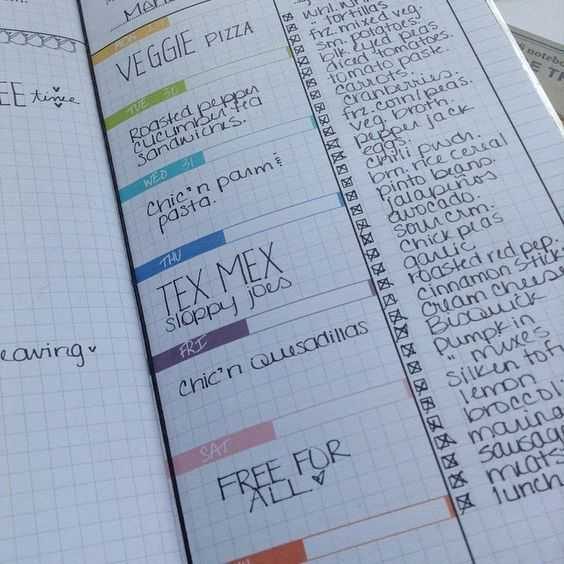 EE time
eaving
MON
VEGGIE PIZZA
TUE 30
Roasted pepper
cucumber tea
sandwiches.
WED 31
chic'n parm &
pasta.
THU
TEX MEX
sloppy joes
FRI
chic'n quesadillas
SAT
FREE FOR
ALL.
tortillas
frz. mixed veg.
sm. potatoes.
blk eyed peas
diced tomatoes.
tomato paste.
carrots.
cranberries.
frz. corn/peas.
veg. broth.
pepper jack
eggs.
chili pwdr.
brn. rice cereal
pinto beans.
jalapeños
avocado.
sour crm.
chick peas
garlic
roasted red pep.
cinnamon stick
cream cheese
Bisquick
pumpkin
" mixes
silken tofu
lemon
broccoli
marina
sausage
meats
lunch
notebo
E TH